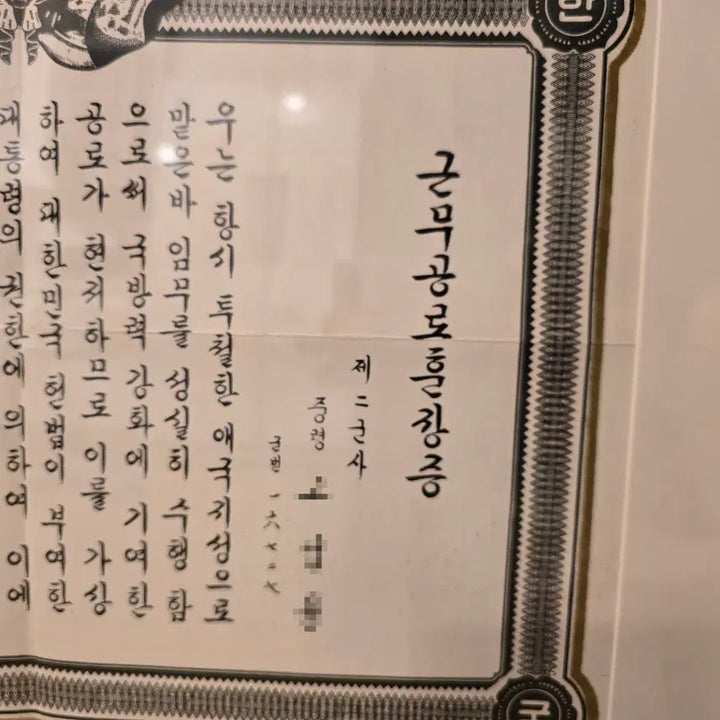 한
근무공로훈장증
제二군사
중령
군번
우는 항시 투철한 애국지성으로
맡은바 임무를 성실히 수행함
으로써 국방력 강화에 기여한
공로가 현저하므로 이를 가상
하여 대한민국 헌법이 부여한
대통령의 권한에 의하여 이에